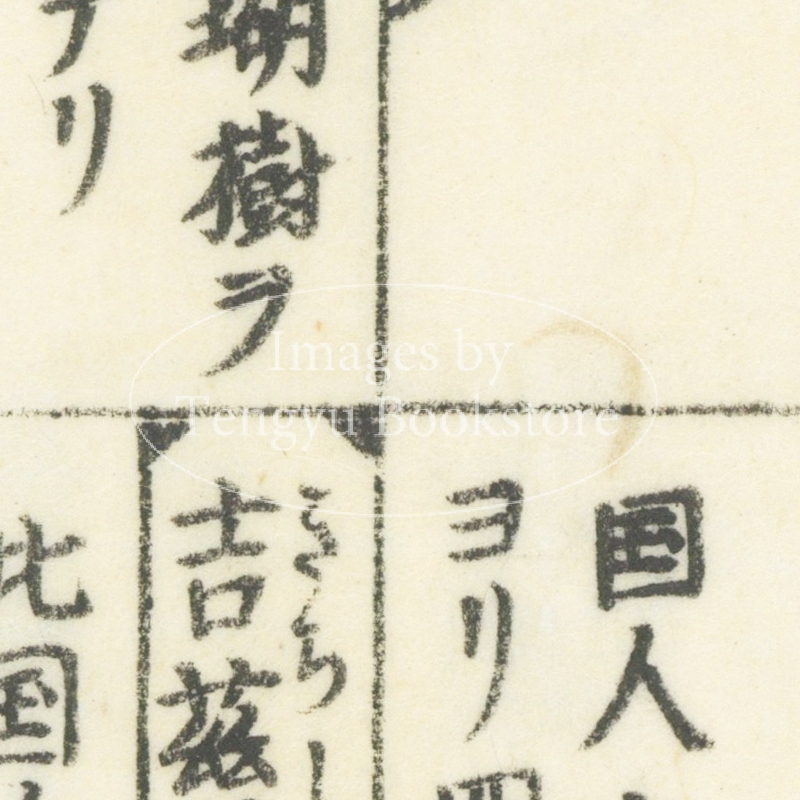 瑚樹ヲ
ナリ
国人
ヨリ四
きらし
吉茲
此国
Images by
Tengyu Bookstore